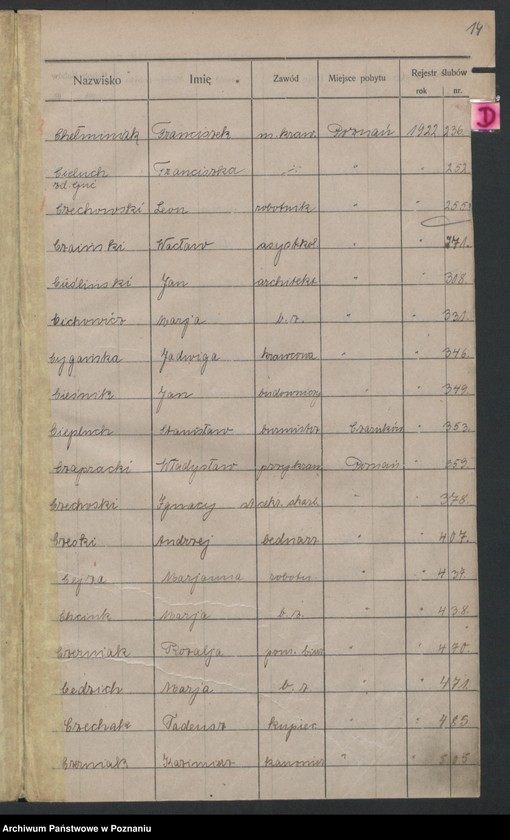 14
Nazwisko Imię Zawód Miejsce pobytu Rejestr ślubów
rok nr.
D
Chełminiak Franciszek m. kraw. Poznań 1922 236.
Ciduch Franciszka " " " 252
zd. Guć
Czechowski Leon robotnik " " 255
Czaiński Wacław asyst. kol. " " 271.
Cieśliński Jan architekt " " 318.
Cichowicz Marja b. z. " " 331.
Cygańska Jadwiga krawcowa " " 346.
Cieśnik Jan budowniczy " " 349.
Ciepluch Stanisław burmistrz Czarnków " 353.
Czapracki Władysław Poznań " 359.
Ignacy " " 378.
Czeski Andrzej bednarz " " 407.
Cejza Marjanna robotn. " " 437.
Chcink Marja b. z. " " 438.
Czerniak Rozalja pom. biur. " " 470.
Cedzich Marja b. z. " " 471.
Czechak Tadeusz kupiec " " 485
Czerniak Kazimierz kanonier " " 505
Archiwum Państwowe w Poznaniu